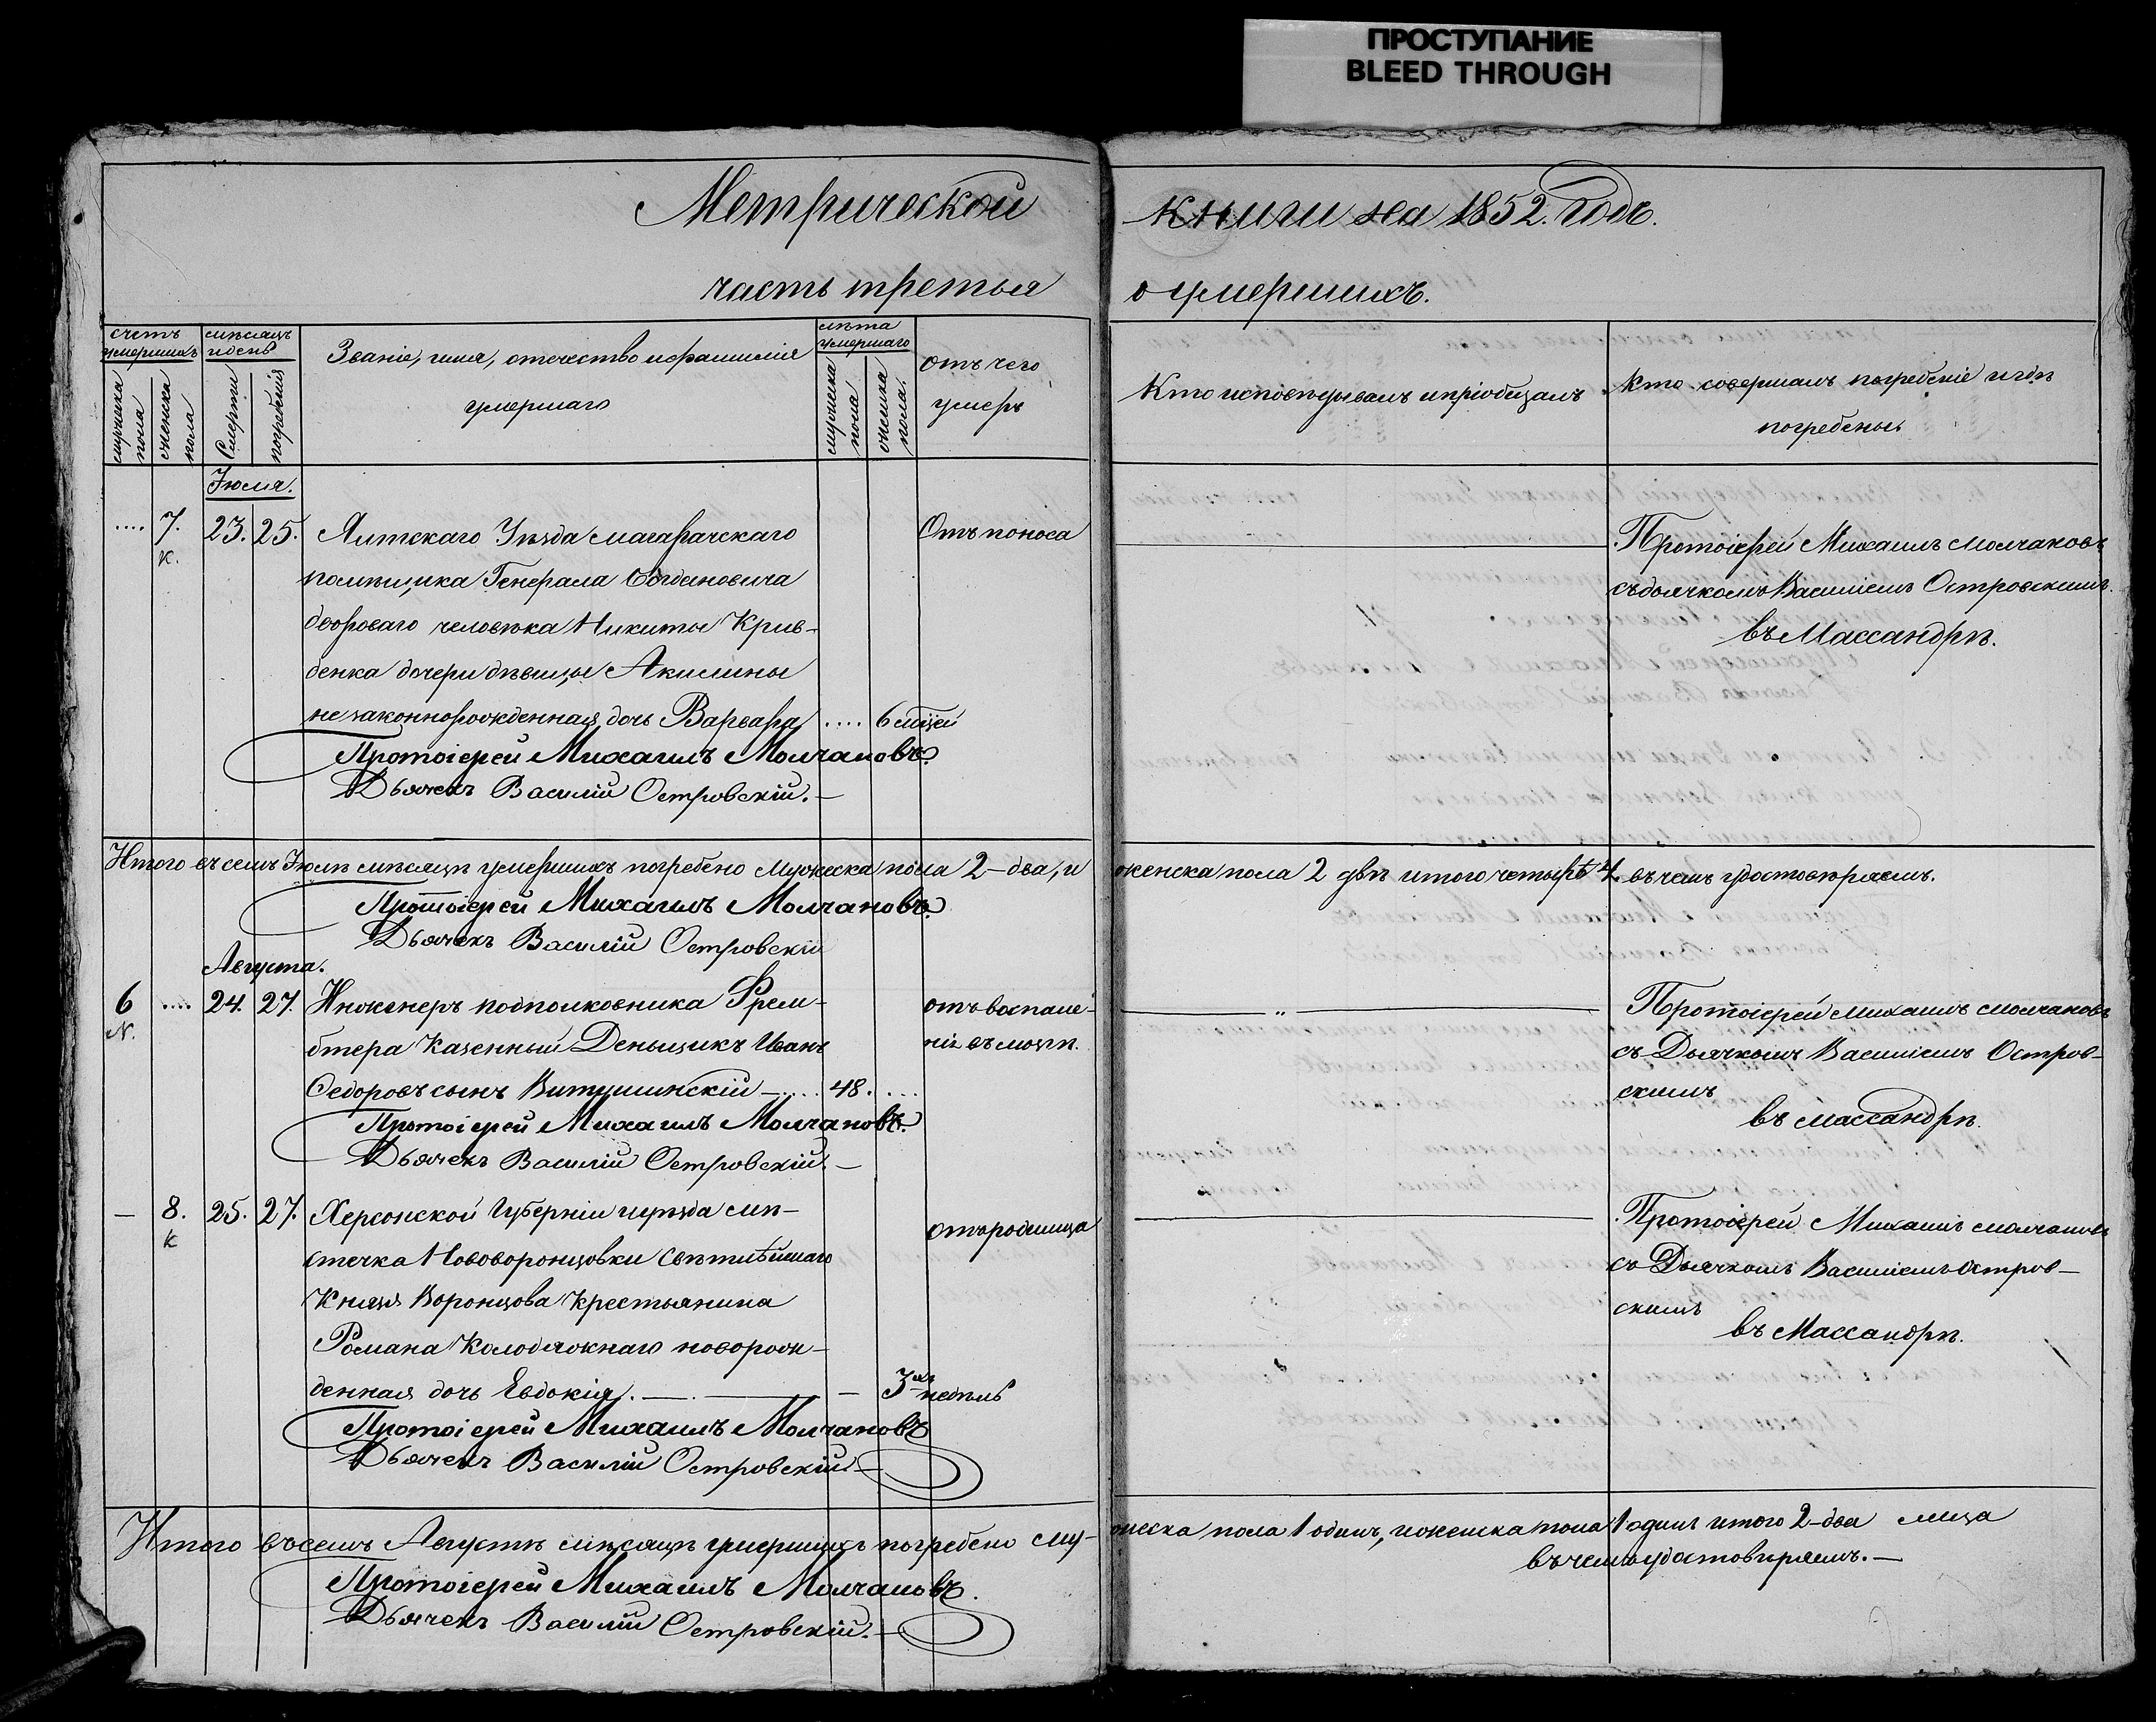 ПРОСТУПАНИЕ
BLEED THROUGH
Метрической книги на 1852. годъ.
часть третья о умершихъ.
счетъ умершихъ
мужеска пола
женска пола
мѣсяцъ и день
Смерти
погребенія
Званіе, имя, отечество и фамилія
умершаго
лѣта умершаго
мужеска пола
женска пола.
отъ чего
умеръ
Кто исповѣдывалъ и пріобщалъ
Кто совершалъ погребеніе и гдѣ
погребены.
Іюля.
.... 7. 23. 25. Ялтскаго Уѣзда Магарачскаго Отъ поноса
к.
помѣщика Генерала Богдановича
двороваго человѣка Никиты Крив-
денка дочери дѣвицы Акилины
незаконнорожденная дочь Варвара .... 6 мѣцей
Протоіерей Михаилъ Молчановъ
съ дьячкомъ Василіемъ Островскимъ.
въ Массандрѣ.
Протоіерей Михаилъ Молчановъ.
Дьячекъ Василій Островскій.—
Итого въ семъ Іюлѣ мѣсяцѣ умершихъ погребено Мужеска пола 2-два, и женска пола 2 двѣ итого четыре 4. въ чемъ удостовѣряемъ.
Протоіерей Михаилъ Молчановъ.
Дьячекъ Василій Островскій
Августа.
6 .... 24. 27. Инженеръ подполковника Фрем- отъ воспале-
N.
бтера Казенный Деньщикъ Иванъ нія въ мозгѣ.
Федоровъ сынъ Витушинскій —.... 48. ....
Протоіерей Михаилъ Молчановъ
съ Дьячкомъ Василіемъ Остров-
скимъ
въ Массандрѣ.
Протоіерей Михаилъ Молчановъ.
Дьячекъ Василій Островскій.—
— 8. 25. 27. Херсонской Губерніи и уѣзда мѣ- отъ родимца
к
стечка Нововоронцовки Свѣтлѣйшаго
Князя Воронцова Крестьянина
Романа Колодяжнаго новорож-
денная дочь Евдокія. — 3хъ недѣль
Протоіерей Михаилъ Молчановъ
съ Дьячкомъ Василіемъ Остров-
скимъ
въ Массандрѣ.
Протоіерей Михаилъ Молчановъ
Дьячекъ Василій Островскій.—
Итого въ семъ Августѣ мѣсяцѣ умершихъ погребено му- жеска пола 1 одинъ, и женска пола 1 одинъ итого 2-два лица
въ чемъ удостовѣряемъ.—
Протоіерей Михаилъ Молчановъ.
Дьячекъ Василій Островскій.—